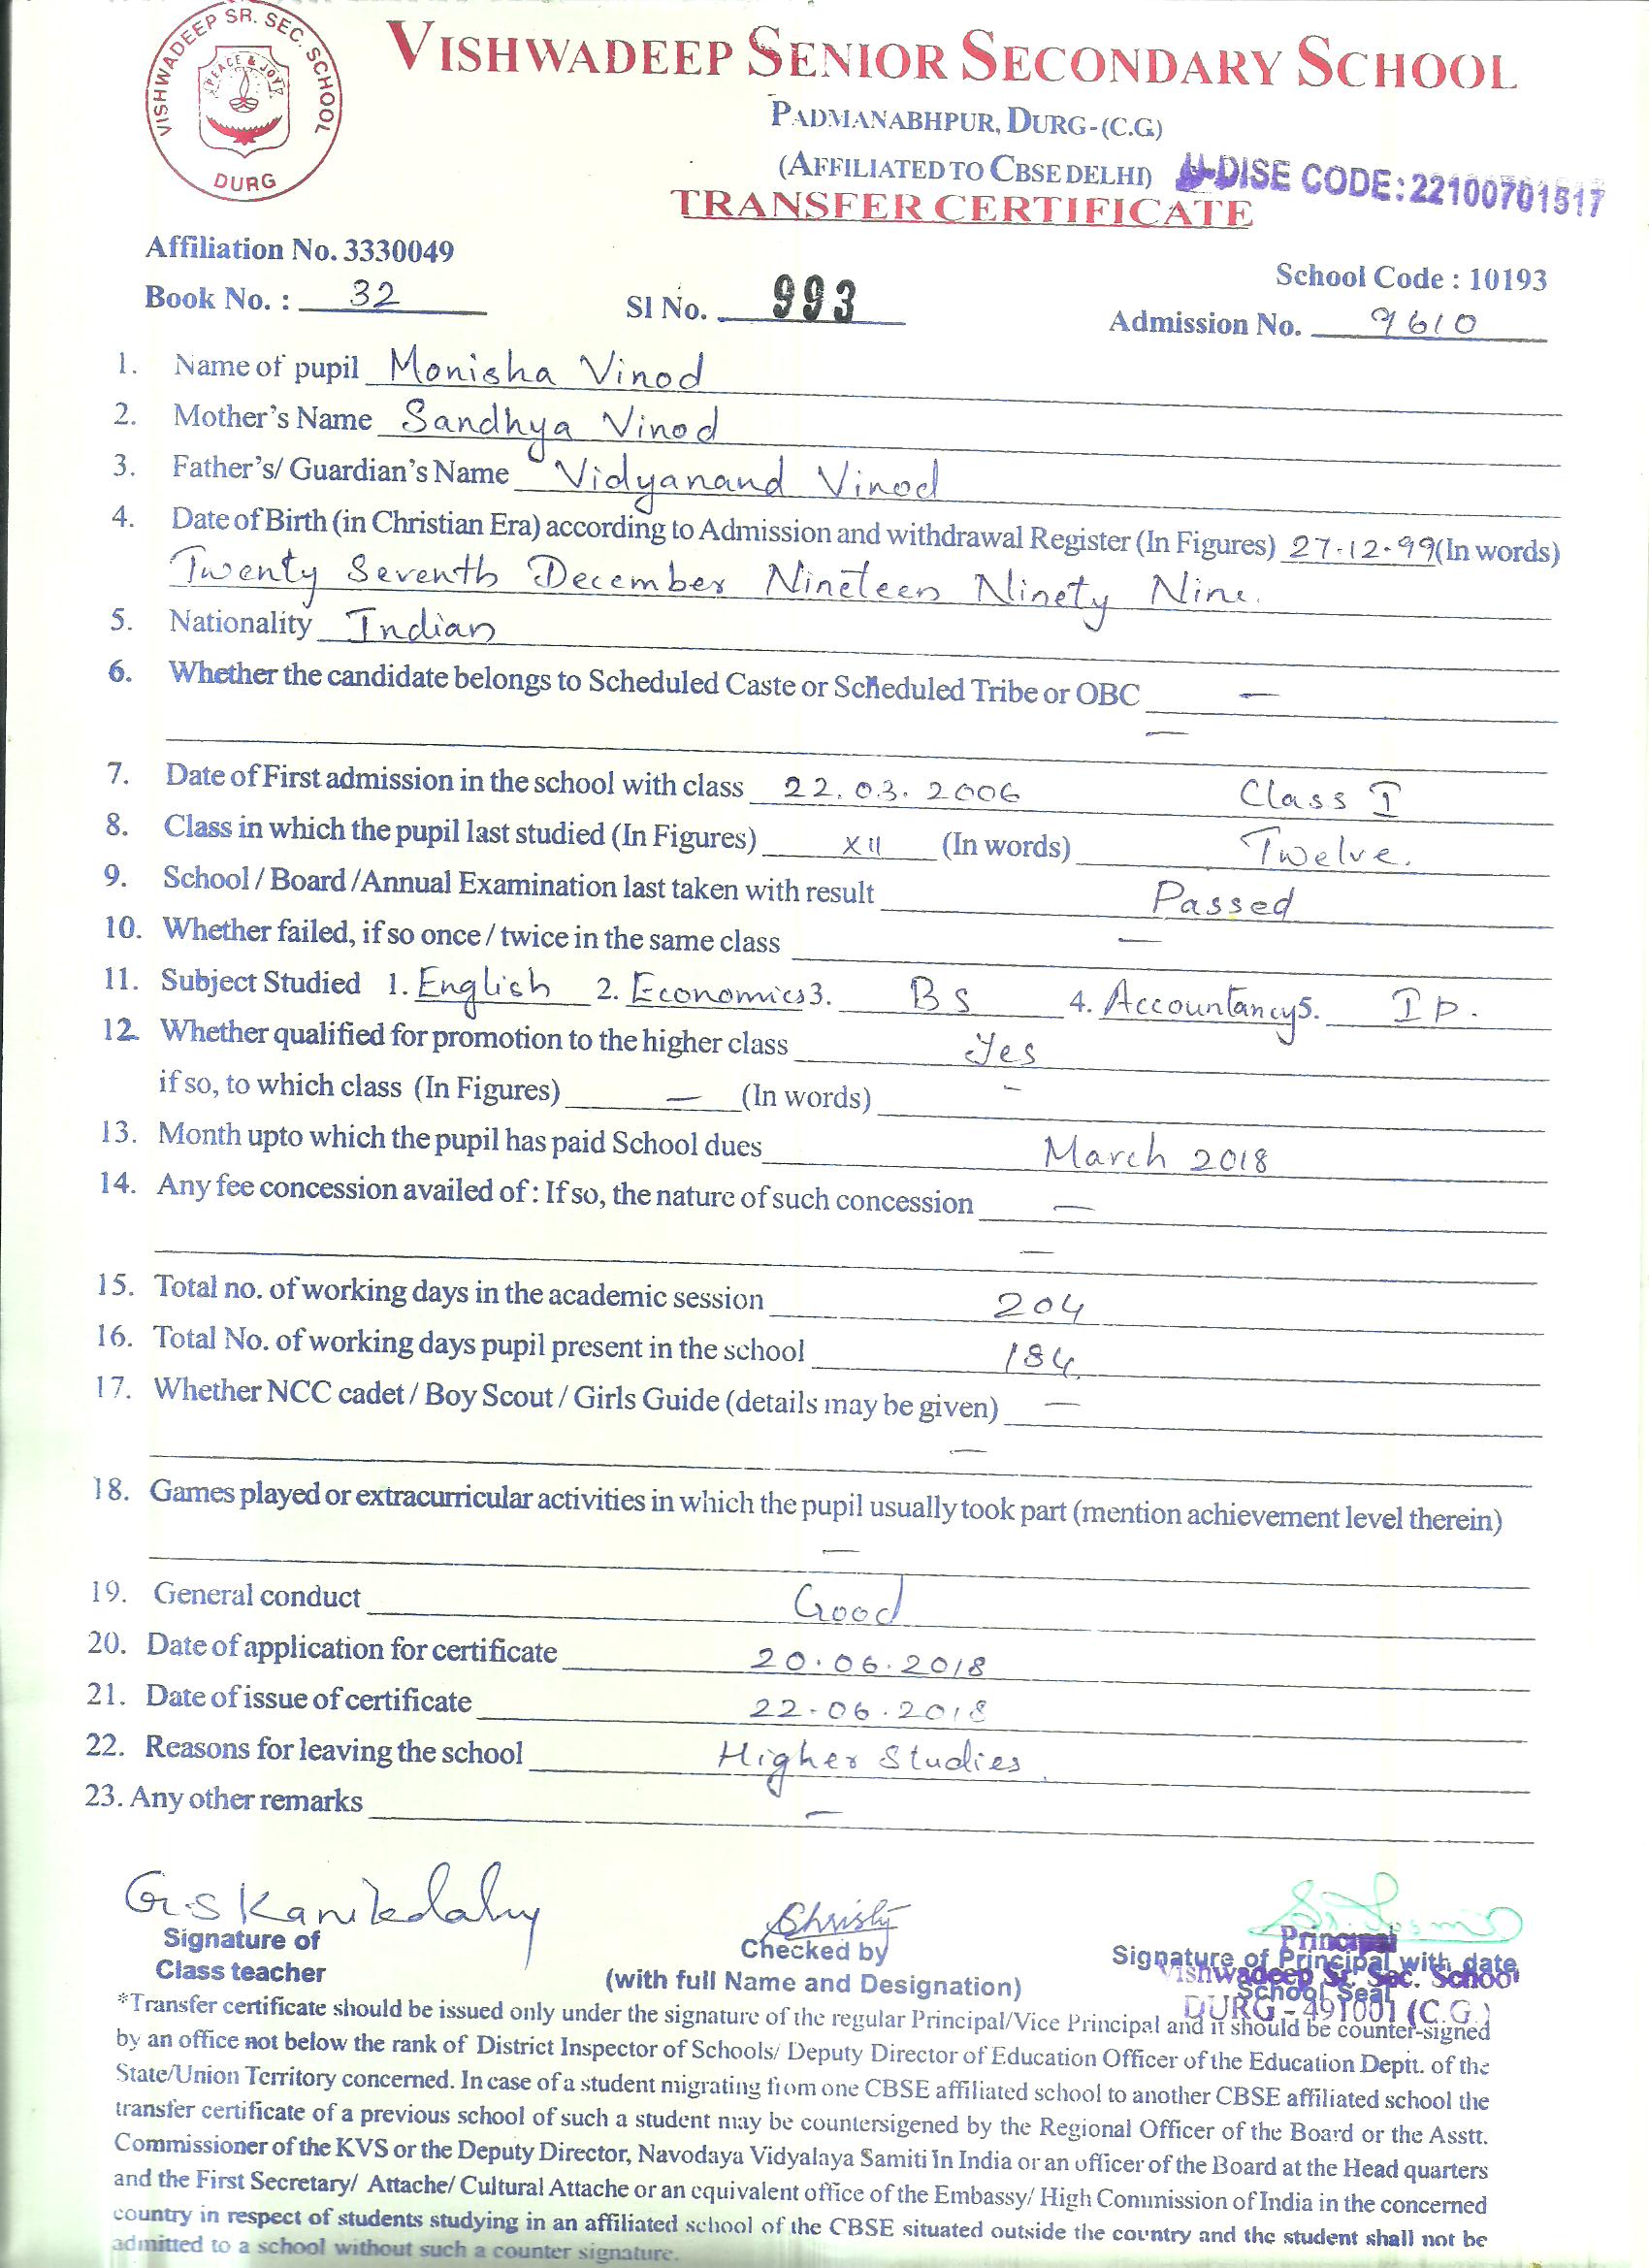 VISHWADEEP SR. SEC. SCHOOL
PEACE & JOY
DURG
VISHWADEEP SENIOR SECONDARY SCHOOL
PADMANABHPUR, DURG-(C.G)
(AFFILIATED TO CBSE DELHI) U-DISE CODE:22100701517
TRANSFER CERTIFICATE
Affiliation No. 3330049
School Code : 10193
Book No. : 32 Sl No. 993 Admission No. 9610
1. Name of pupil Monisha Vinod
2. Mother's Name Sandhya Vinod
3. Father's/ Guardian's Name Vidyanand Vinod
4. Date of Birth (in Christian Era) according to Admission and withdrawal Register (In Figures) 27.12.99 (In words)
Twenty Seventh December Nineteen Ninety Nine.
5. Nationality Indian
6. Whether the candidate belongs to Scheduled Caste or Scheduled Tribe or OBC —
—
7. Date of First admission in the school with class 22.03.2006 Class I
8. Class in which the pupil last studied (In Figures) XII (In words) Twelve.
9. School / Board /Annual Examination last taken with result Passed
10. Whether failed, if so once / twice in the same class —
11. Subject Studied 1. English 2. Economics 3. BS 4. Accountancy 5. IP.
12. Whether qualified for promotion to the higher class Yes
if so, to which class (In Figures) — (In words) -
13. Month upto which the pupil has paid School dues March 2018
14. Any fee concession availed of : If so, the nature of such concession —
—
15. Total no. of working days in the academic session 204
16. Total No. of working days pupil present in the school 184
17. Whether NCC cadet / Boy Scout / Girls Guide (details may be given) —
—
18. Games played or extracurricular activities in which the pupil usually took part (mention achievement level therein)
—
19. General conduct Good
20. Date of application for certificate 20.06.2018
21. Date of issue of certificate 22.06.2018
22. Reasons for leaving the school Higher Studies.
23. Any other remarks —
Signature of
Class teacher
Christy
Checked by
(with full Name and Designation)
Principal
Signature of Principal with date
Vishwadeep Sr. Sec. School
School Seal
DURG - 491001 (C.G.)
*Transfer certificate should be issued only under the signature of the regular Principal/Vice Principal and it should be counter-signed
by an office not below the rank of District Inspector of Schools/ Deputy Director of Education Officer of the Education Deptt. of the
State/Union Territory concerned. In case of a student migrating from one CBSE affiliated school to another CBSE affiliated school the
transfer certificate of a previous school of such a student may be countersigened by the Regional Officer of the Board or the Asstt.
Commissioner of the KVS or the Deputy Director, Navodaya Vidyalaya Samiti in India or an officer of the Board at the Head quarters
and the First Secretary/ Attache/ Cultural Attache or an equivalent office of the Embassy/ High Commission of India in the concerned
country in respect of students studying in an affiliated school of the CBSE situated outside the country and the student shall not be
admitted to a school without such a counter signature.